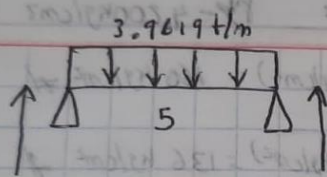 3.9619 t/m
5